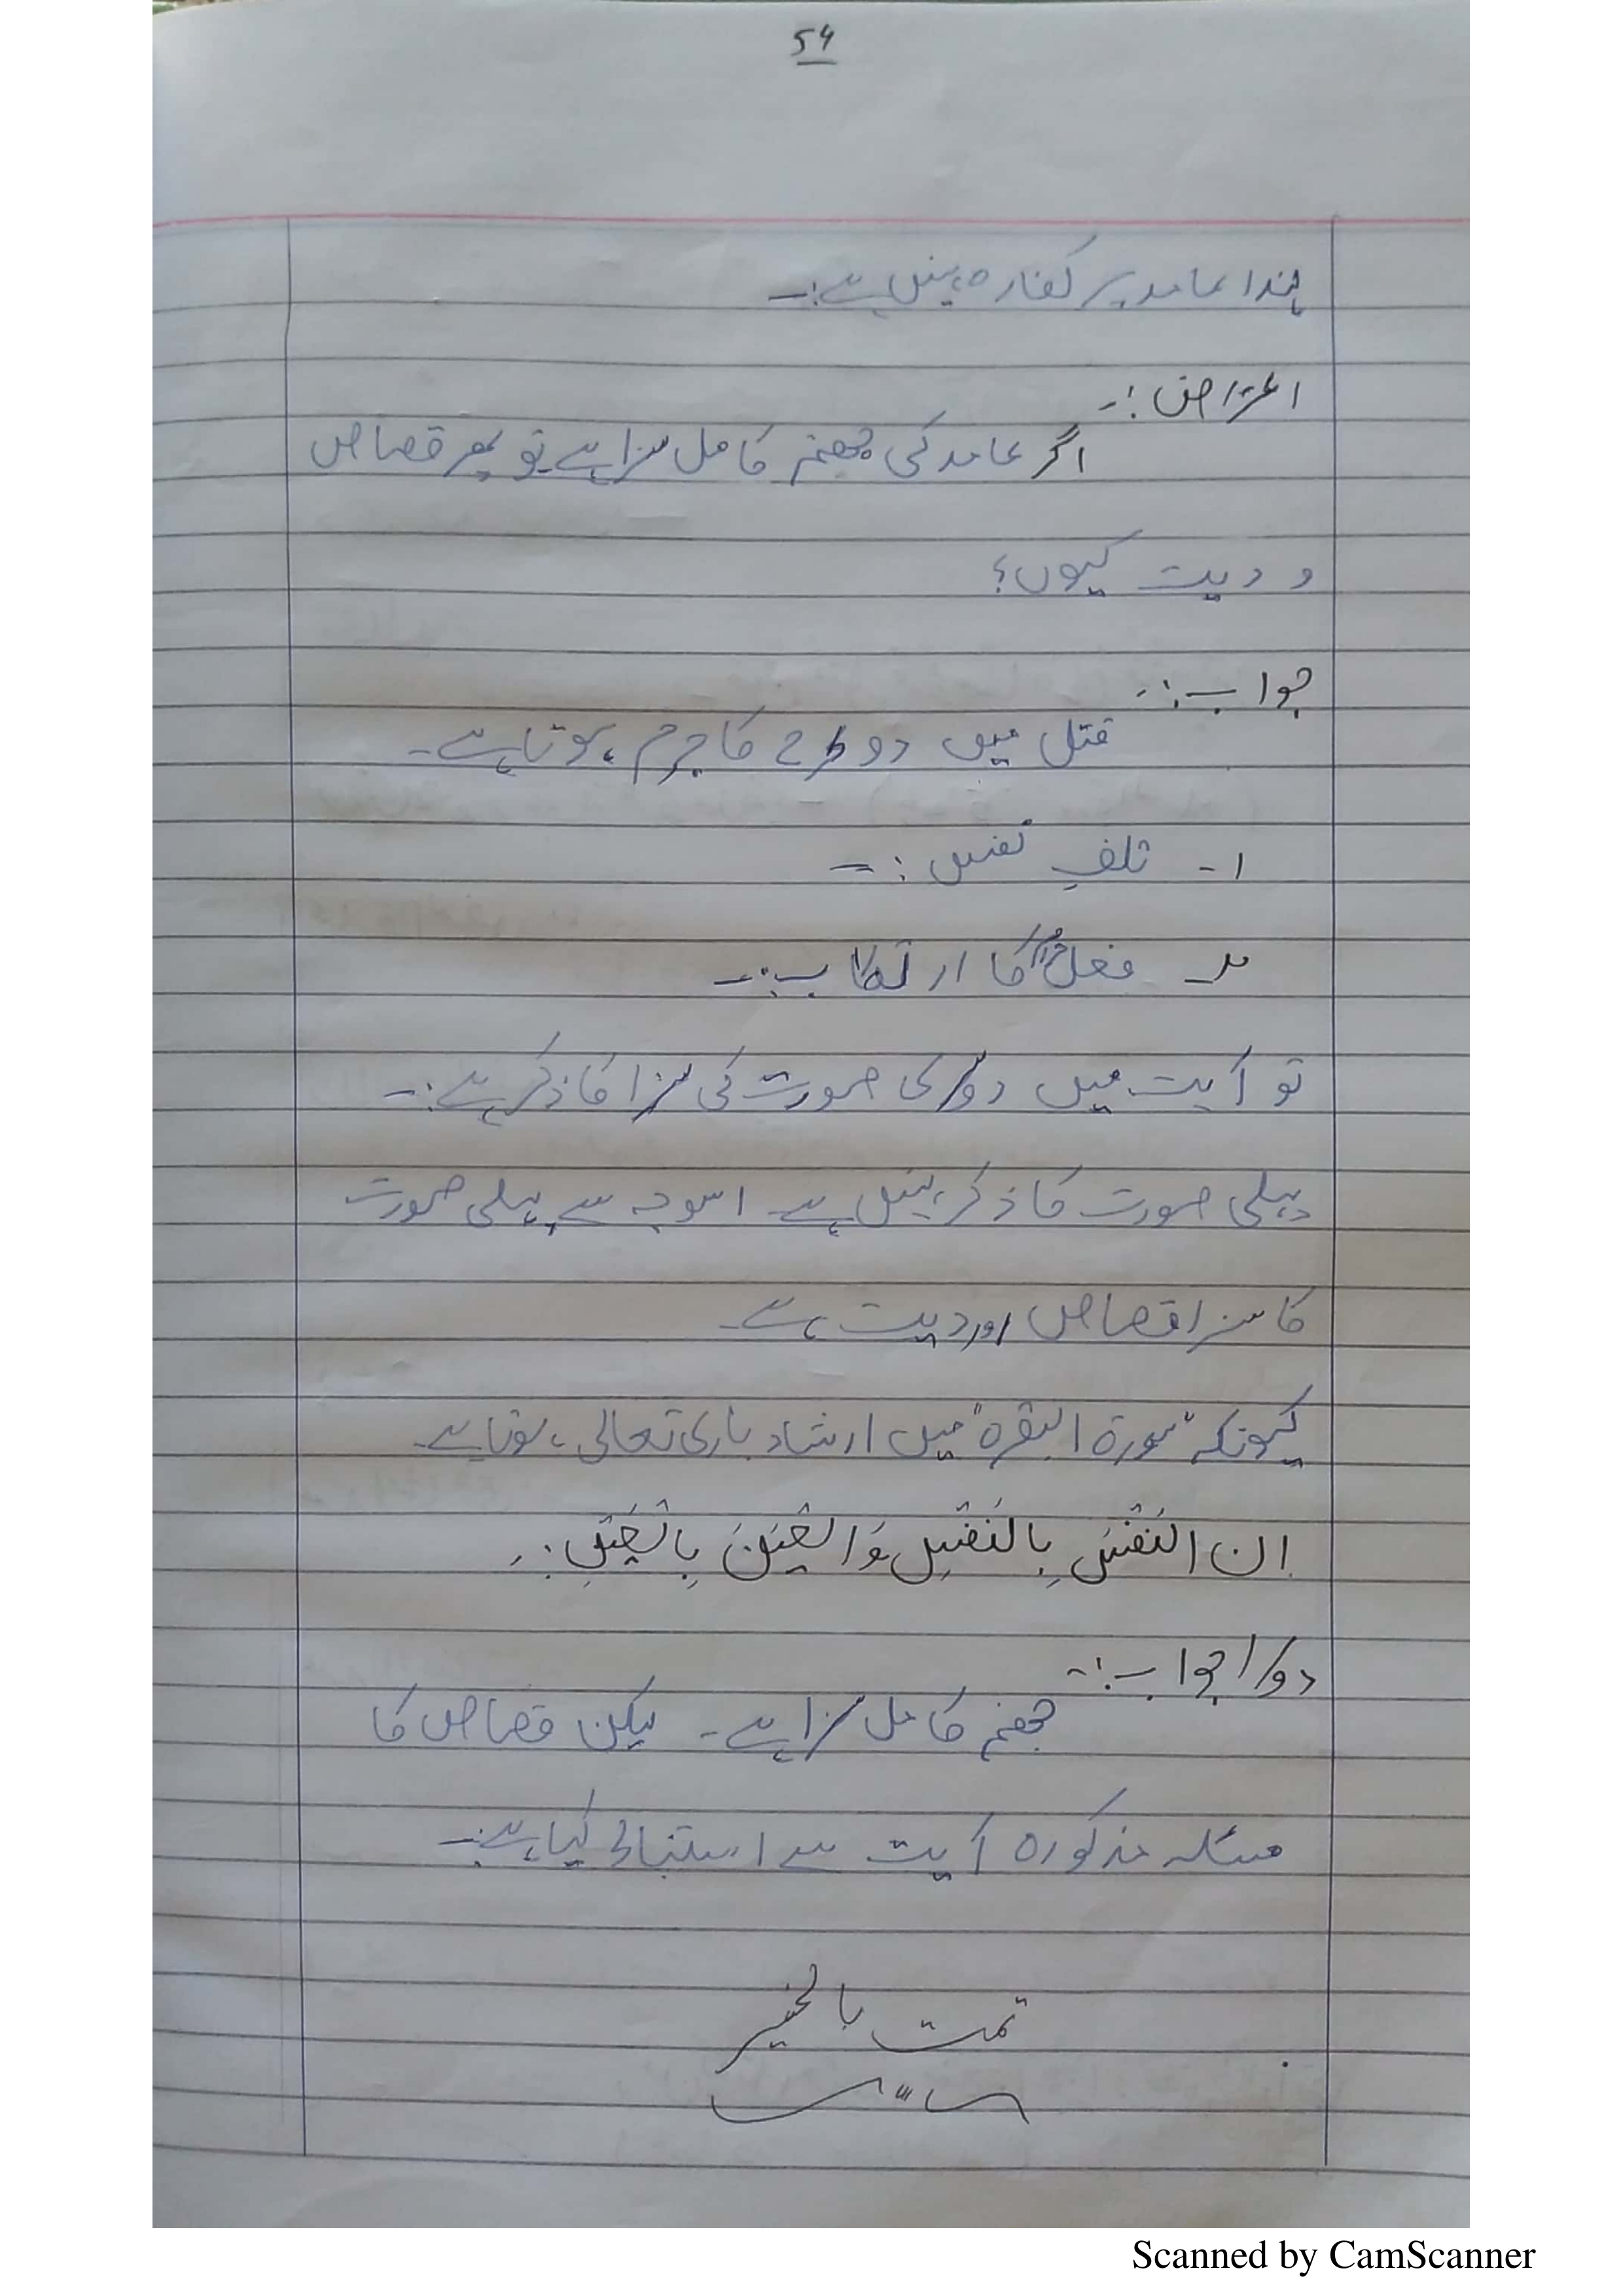 54
لہذا عامد پر کفارہ نہیں ہے:-
اعتراض:-
اگر عامد کی جھنم کامل سزا ہے تو پھر قصاص
و دیت کیوں؟
جواب:-
قتل میں دو طرح کا جرم ہوتا ہے۔
۱- تلفِ نفس:-
۲- فعل کا ارتکاب:-
تو آیت میں دوسری صورت کی سزا کا ذکر ہے:-
پہلی صورت کا ذکر نہیں ہے۔ اسوجہ سے پہلی صورت
کا سزا قصاص اور دیت ہے۔
کیونکہ "سورۃ البقرہ" میں ارشاد باری تعالی ہوتا ہے۔
ان النَفْسَ بِالنَفْسِ وَالعَیْنَ بِالعَیْنِ:-
دوسرا جواب:-
جھنم کامل سزا ہے۔ لیکن قصاص کا
مسئلہ مذکورہ آیت سے استنباط کیا ہے:-
تمت بالخیر
Scanned by CamScanner